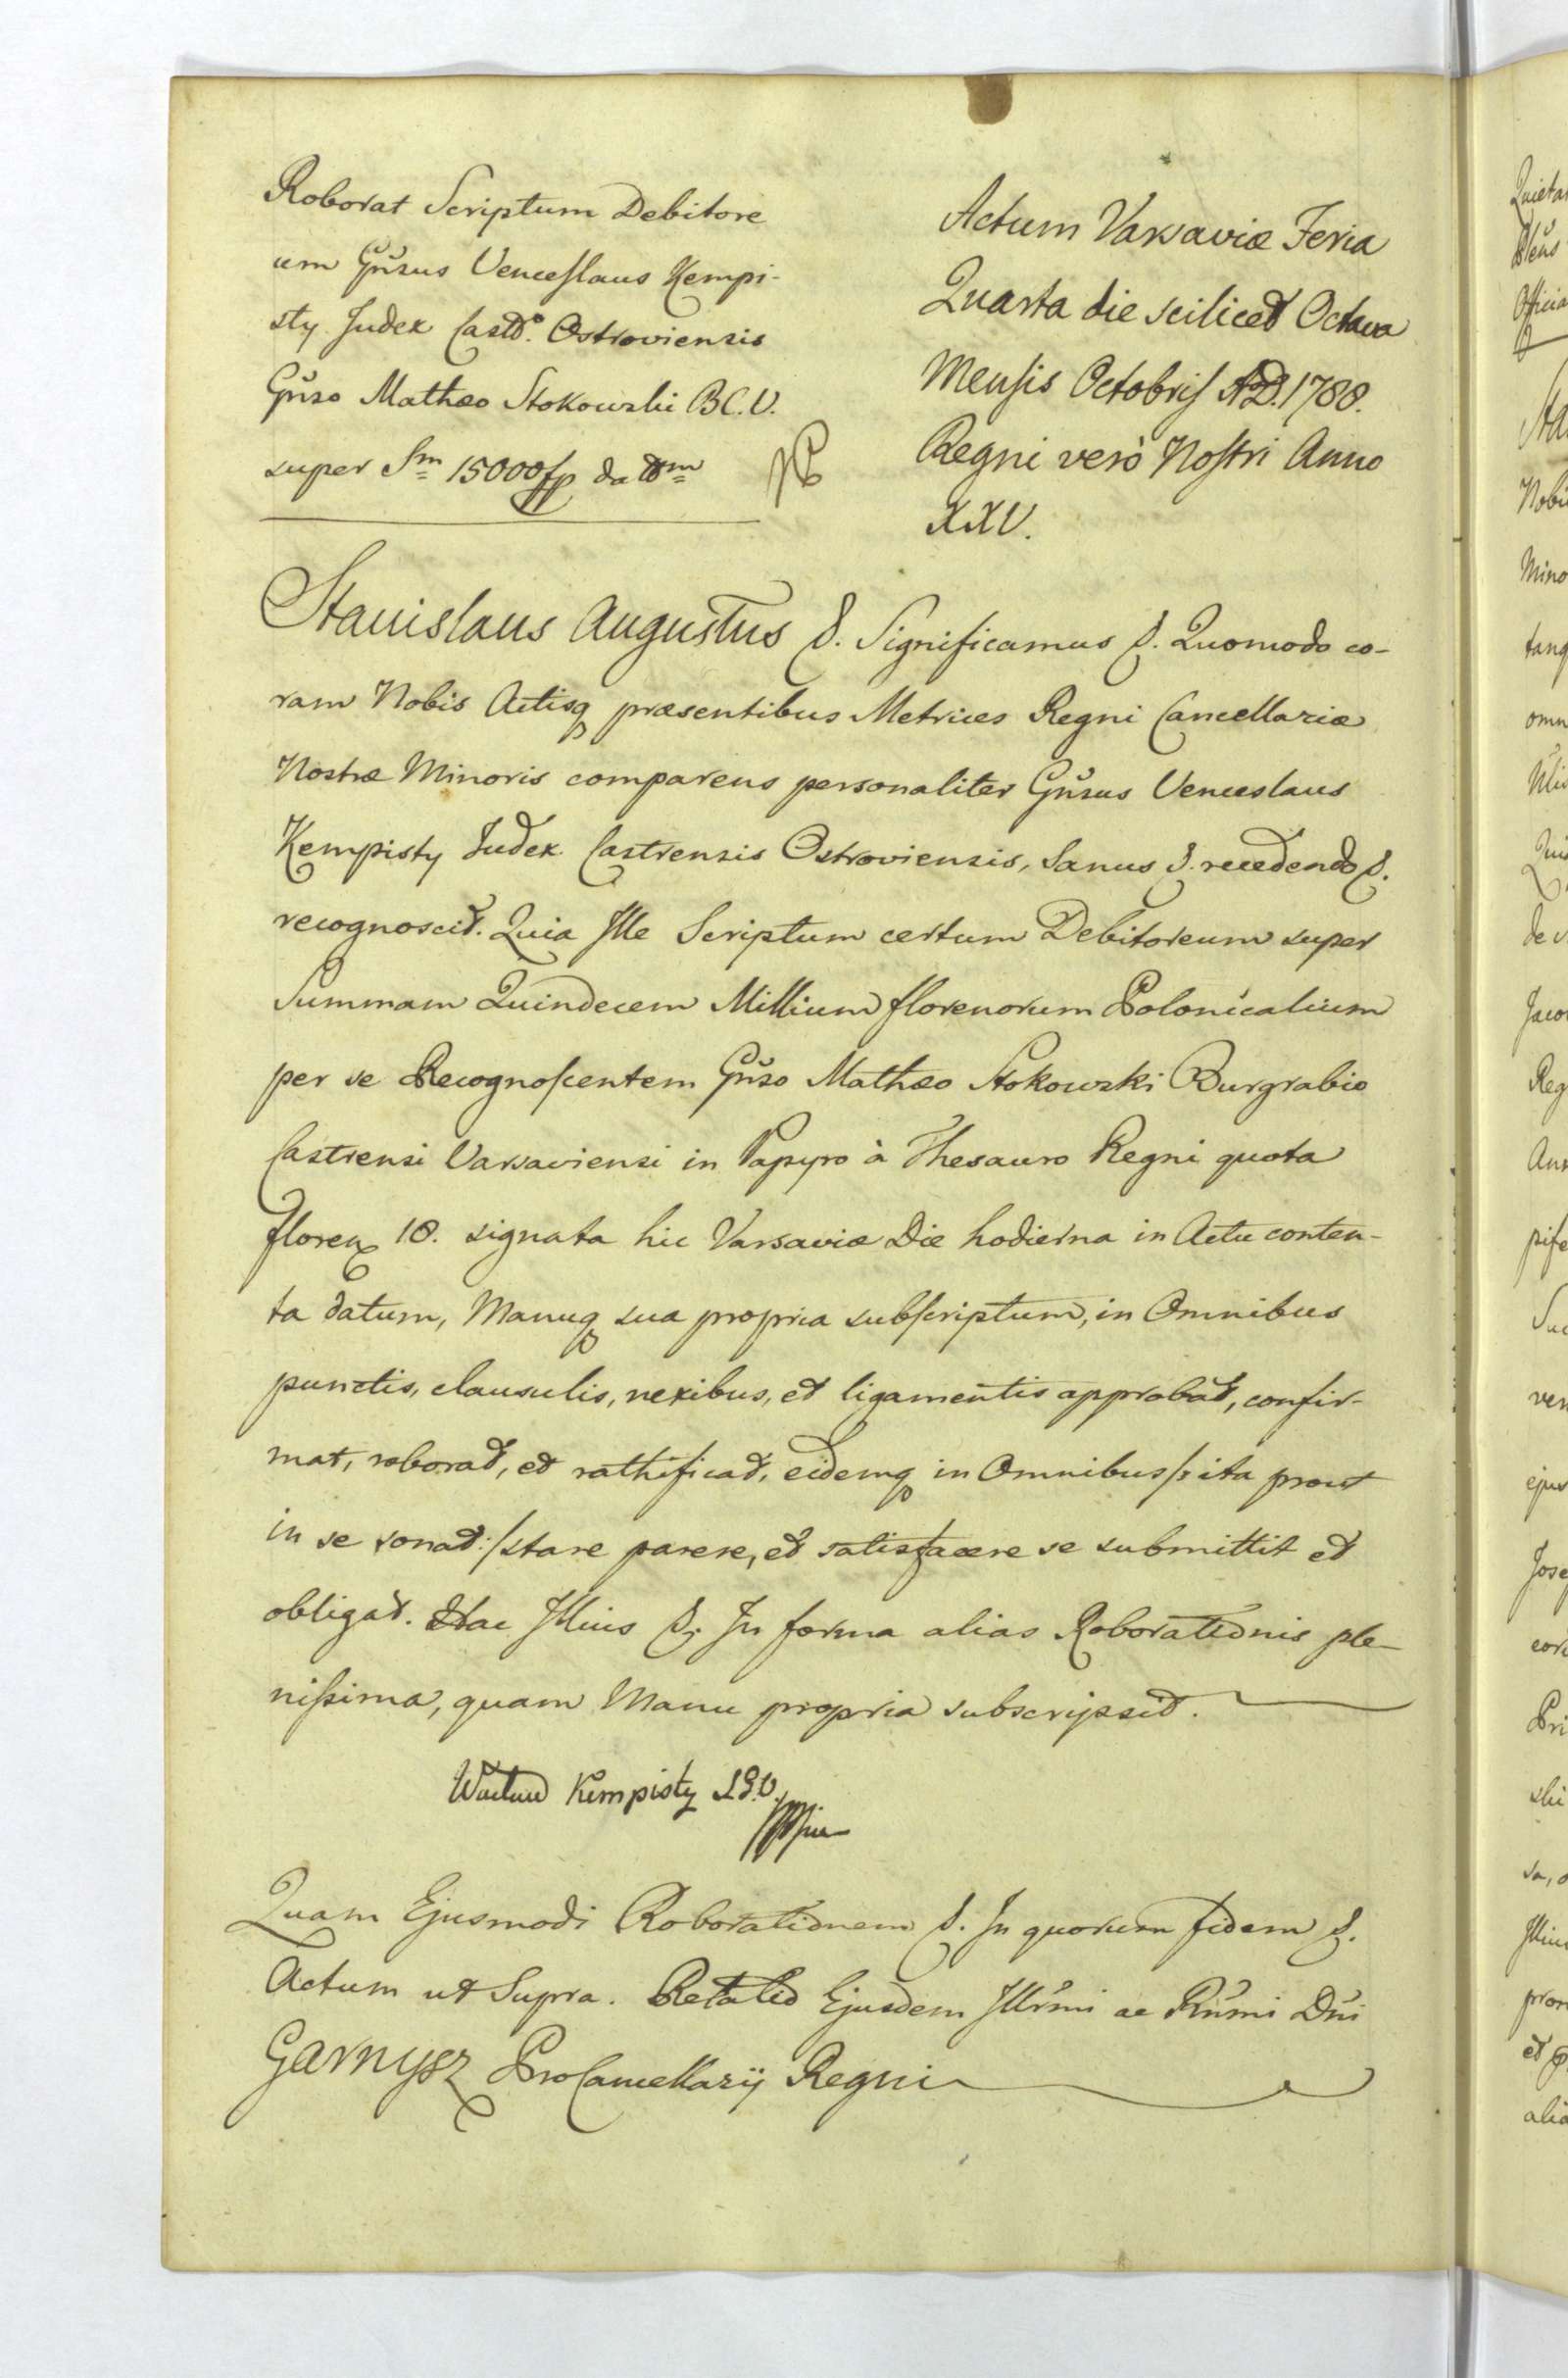 Roborat Scriptum Debitore
um Gñsus Venceslaus Kempi-
sty Judex Castr. Ostroviensis
Gñso Mathæo Stokowski B.C.V.
super Sm 15000 fp datm
Actum Varsaviæ Feria
Quarta die scilicet Octava
Mensis Octobris A.D. 1788.
Regni verò Nostri Anno
XXV.
Stanislaus Augustus &. Significamus &. Quomodo co-
ram Nobis Actisq præsentibus Metrices Regni Cancellariæ
Nostræ Minoris comparens personaliter Gñsus Venceslaus
Kempisty Judex Castrensis Ostroviensis, Sanus &. recedendo &.
recognoscit. Quia Ille Scriptum certum Debitoreum super
Summam Quindecem Millium florenorum Polonicalium
per se Recognoscentem Gñso Mathæo Stokowski Burgrabio
Castrensi Varsaviensi in Papyro à Thesauro Regni quota
floren 18. signata hic Varsaviæ Die hodierna in Actu conten-
ta datum, Manuq sua propria subscriptum, in Omnibus
punctis, clausulis, nexibus, et ligamentis approbat, confir-
mat, roborat, et rathificat, eidemq in Omnibus /: ita prout
in se sonat :/ stare parere, et satisfacere se submittit et
obligat. Hac Illius &. In forma alias Roborationis ple-
nissima, quam Manu propria subscripsit.
Wacław Kempisty
Quam Ejusmodi Roborationem &. In quorum fidem &.
Actum ut Supra. Relatio Ejusdem Illrmi ac Rñmi Dñi
Garnysz ProCancellarij Regni
Quieta
Officia
Sta
Nobi
Mino
tanq
omn
Qui
de v
Jaco
Reg
Ann
ven
ejus
Jose
Pri
ski
sa, o
Illiu
pron
alia